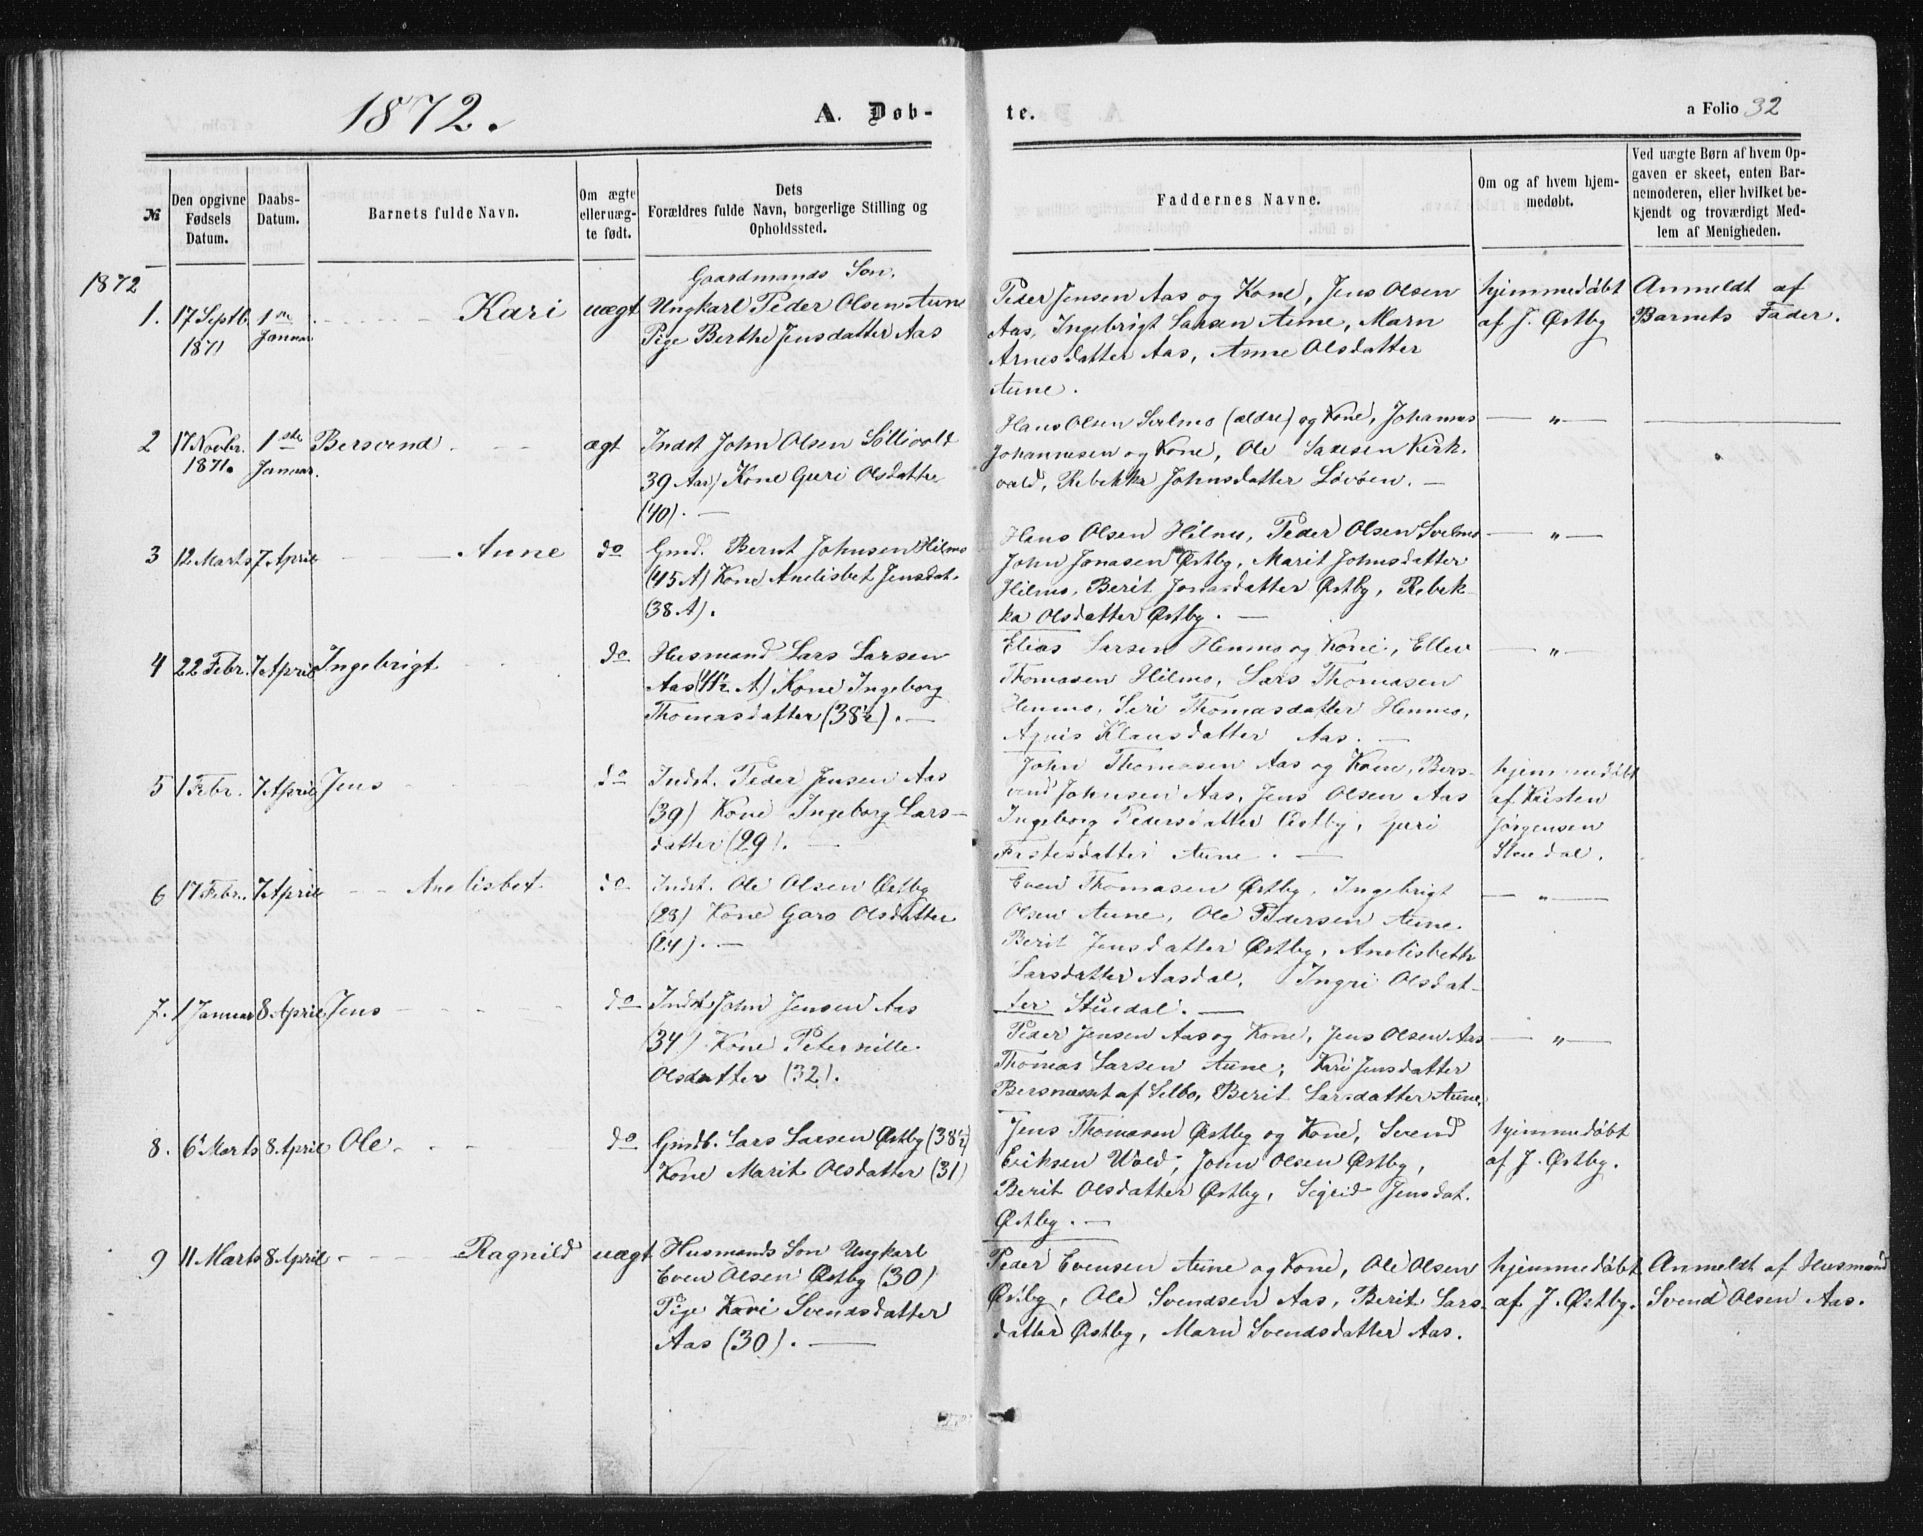 1872.
A. Døb-
te.
a Folio 32
№
Den opgivne Fødsels Datum.
Daabs-Datum.
Barnets fulde Navn.
Om ægte eller uæg-te født.
Dets
Forældres fulde Navn, borgerlige Stilling og
Opholdssted.
Faddernes Navne.
Om og af hvem hjem-
medøbt.
Ved uægte Børn af hvem Op-
gaven er skeet, enten Bar-
nemoderen, eller hvilket be-
kjendt og troværdigt Med-
lem af Menigheden.
1872
1. 17 Septb. 1871 1ste Januar Kari uægt
Gaardmands Søn.
Ungkarl Peder Olsen Aune
Pige Berthe Jensdatter Aas
Peder Jensen Aas og Kone, Jens Olsen
Aas, Ingebrigt Larsen Aune, Marn
Arnesdatter Aas, Anne Olsdatter
Aune.
hjemmedøbt
af J. Østby
Anmeldt af
Barnets Fader.
2 17 Novbr. 1871. 1ste Januar. Bersvend ægt
Indst John Olsen
39 Aar) Kone Guri Olsdatter
(40). —
Hans Olsen Svelmo (ældre) og Kone, Johannes
Johannesen og Kone, Ole Larsen Kirk-
vold, Rebekka Johnsdatter Løvøen. —
— „ —
3 12 Marts 7 April Anne do
Gmd. Bernt Johnsen Hilmo
(45 A) Kone Anelisbet Jensdat.
(38 A).
Hans Olsen Hilmo, Peder Olsen Svelmo
John Jonasen Østby, Marit Johnsdatter
Hilmo, Berit Jonasdatter Østby, Rebek-
ka Olsdatter Østby. —
— „ —
4 22 Febr. 7 April Ingebrigt do
Husmand Lars Larsen
Aas (41½ A) Kone Ingeborg
Thomasdatter (38½). —
Elias Larsen Henmo og Kone, Ellev
Thomasen Hilmo, Lars Thomasen
Henmo, Seri Thomasdatter Henmo,
Agnis Klausdatter Aas. —
— „ —
5 1 Febr. 7 April Jens do
Indst. Peder Jensen Aas
(39) Kone Ingeborg Lars-
datter (29). —
John Thomasen Aas og Kone, Bers-
vend Johnsen Aas, Jens Olsen Aas
Ingeborg Pedersdatter Østby, Guri
Estensdatter Aune. —
hjemmedøbt
af Kristen
Jørgensen
Stuedal.
6 17 Febr. 7 April Anelisbet do
Indst. Ole Olsen Østby
(23) Kone Goro Olsdatter
(24). —
Even Thomasen Østby, Ingebrigt
Olsen Aune, Ole Pedersen Aune.
Berit Jensdatter Østby, Anelisbeth
Larsdatter Aasdal, Ingri Olsdat-
ter Stuedal. —
— „ —
7. 1 Januar 8 April Jens do
Indst John Jensen Aas
(34) Kone Peternille
Olsdatter (32).
Peder Jensen Aas og Kone, Jens Olsen Aas
Thomas Larsen Aune, Kari Jensdatter
Bersnæset af Selbo, Berit Larsdatter Aune.
— „ —
8. 6 Marts 8 April Ole do
Gmdb. Lars Larsen Østby (38½)
Kone Marit Olsdatter (31)
Jens Thomasen Østby og Kone, Svend
Eriksen Wold, John Olsen Østby,
Berit Olsdatter Østby, Sigrid Jensdat.
Østby. —
hjemmedøbt
af J. Østby.
9 11 Marts 8 April Ragnild uægt
Husmands Søn Ungkarl
Even Olsen Østby (30)
Pige Kari Svendsdatter
Aas (30). —
Peder Evensen Aune og Kone, Ole Olsen
Østby, Ole Svendsen Aas, Berit Lars-
datter Østby, Marn Svendsdatter Aas.
hjemmedøbt
af J. Østby.
Anmeldt af Husmand
Svend Olsen Aas.